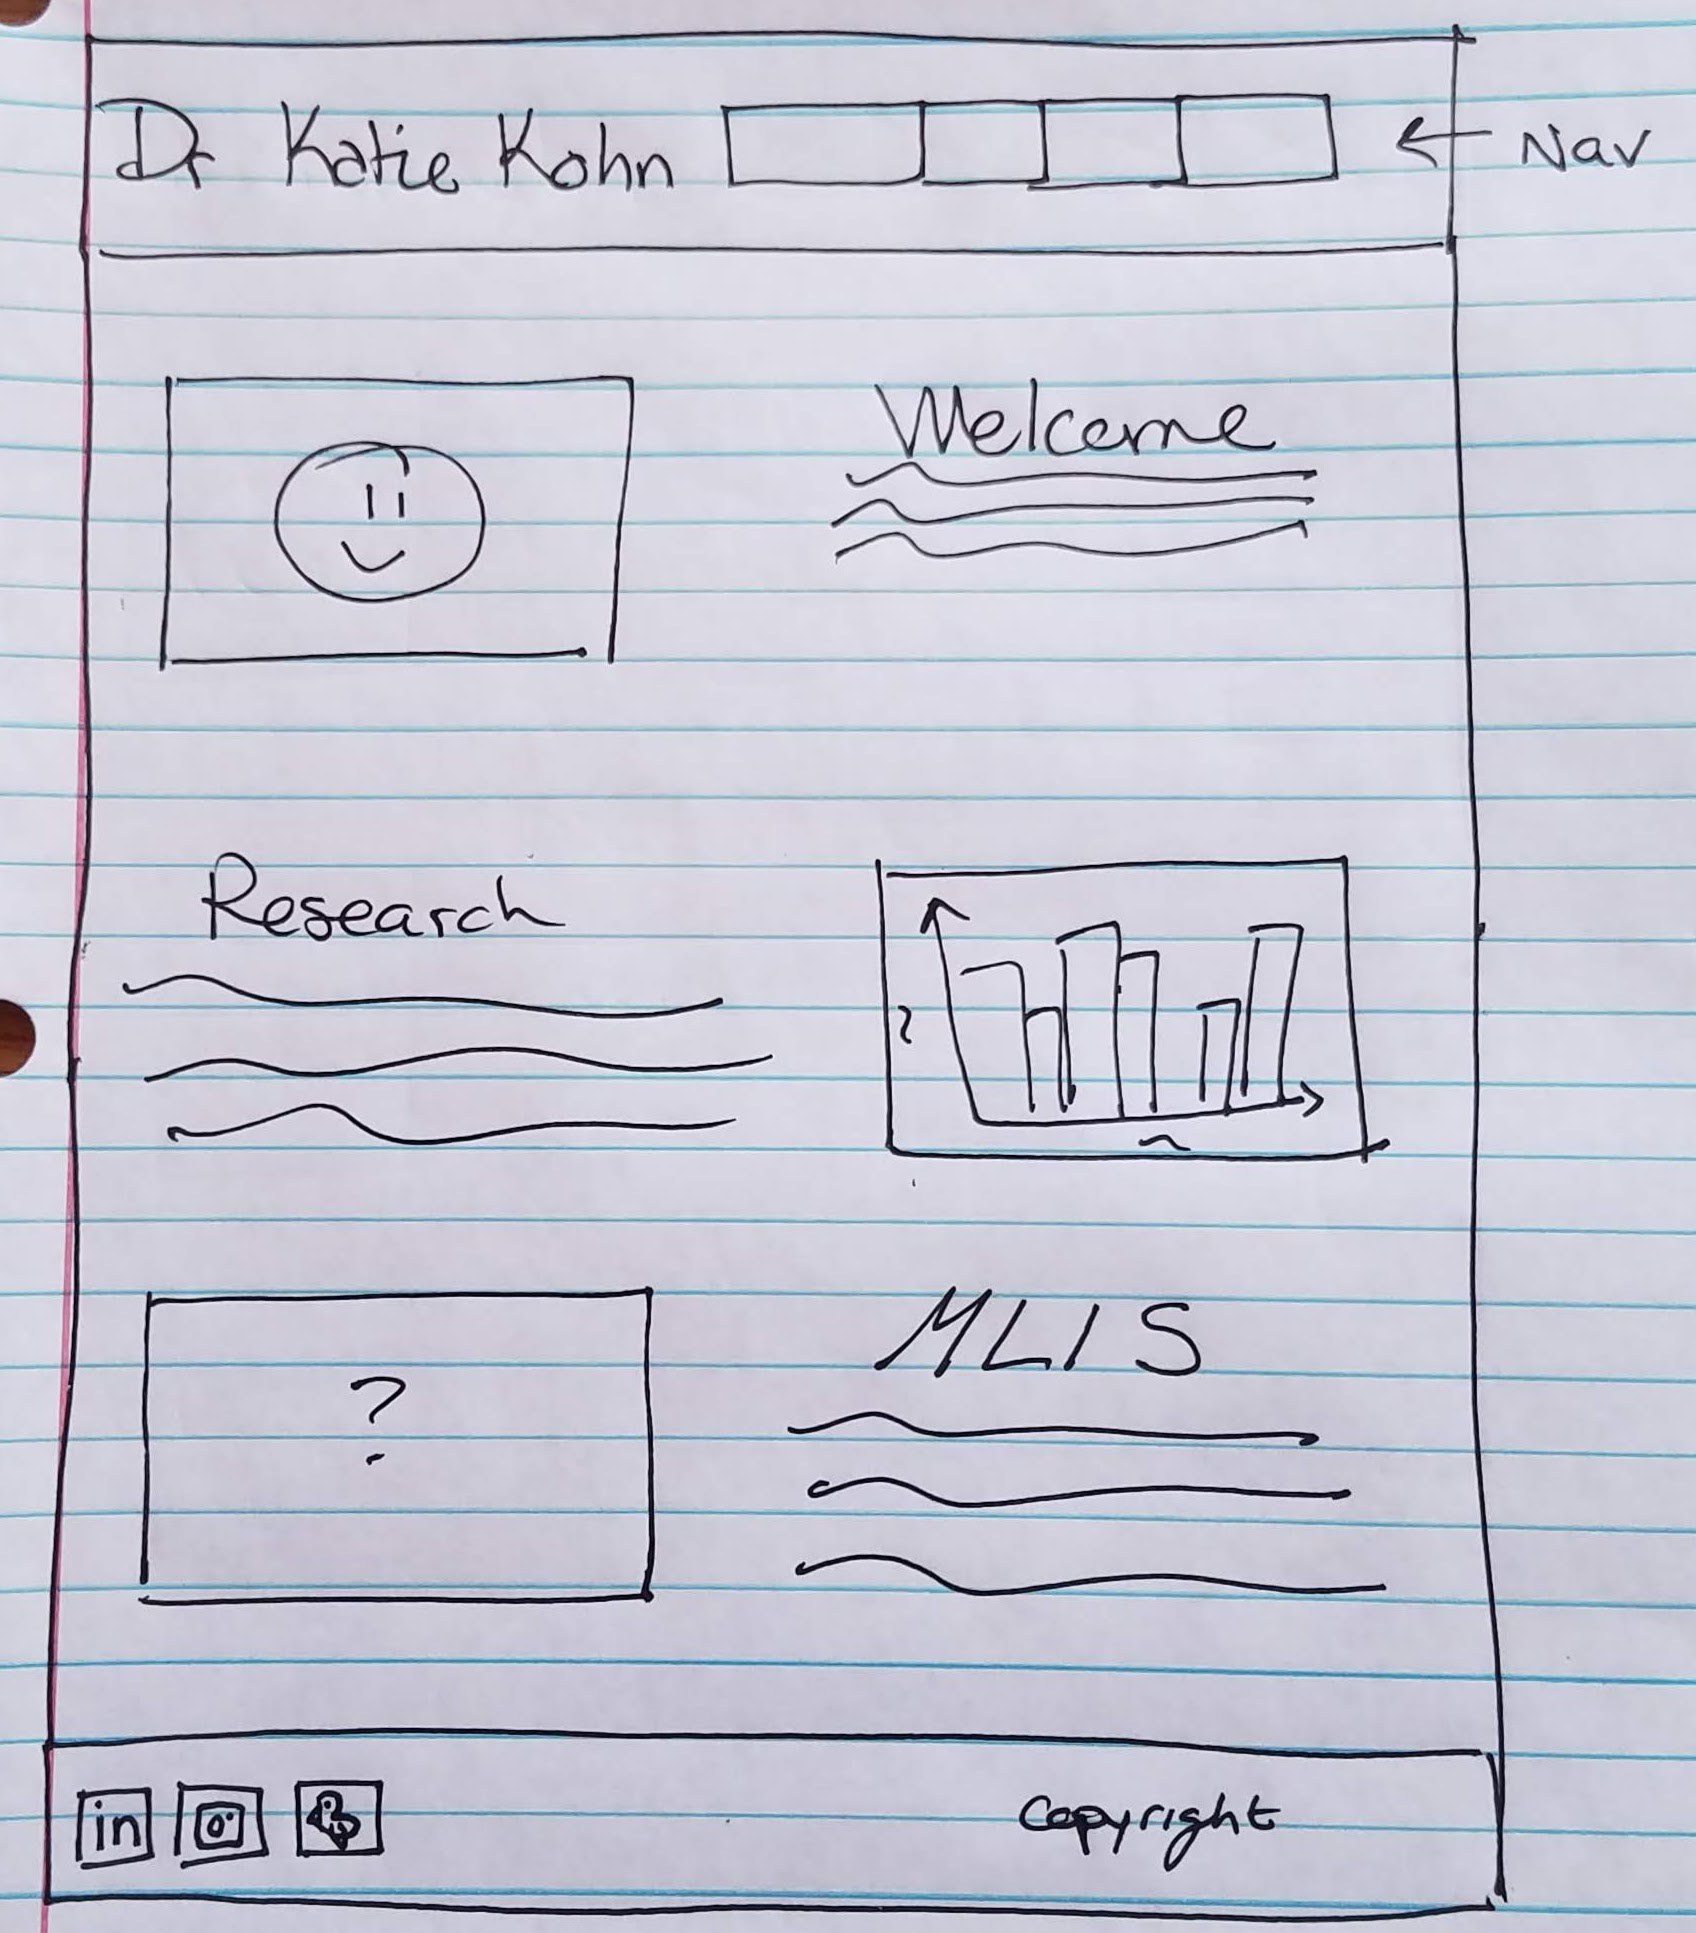 Dr Katie Kohn
← Nav
Welcome
Research
?
MLIS
?
in
Copyright